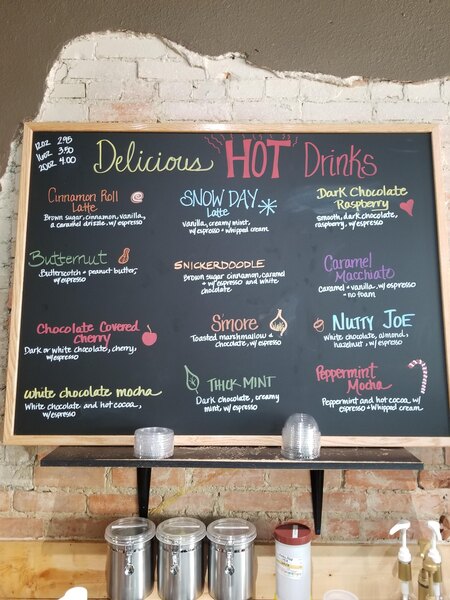 12oz 2.95
16oz 3.50
20oz 4.00
Delicious HOT Drinks
Cinnamon Roll
Latte
Brown sugar, cinnamon, vanilla,
a caramel drizzle, w/espresso
SNOW DAY
Latte
Vanilla, creamy mint,
w/espresso + whipped cream
Dark Chocolate
Raspberry
smooth, dark chocolate,
raspberry, w/espresso
Butternut
Butterscotch + peanut butter,
w/espresso
SNICKERDOODLE
Brown sugar cinnamon, caramel
+ w/espresso and white
chocolate
Caramel
Macchiato
Caramel + vanilla, w/espresso
- no foam
Chocolate Covered
Cherry
Dark or white chocolate, cherry,
w/espresso
S'more
Toasted marshmallow +
chocolate, w/espresso
NUTTY JOE
White chocolate, almond,
hazelnut, w/espresso
White chocolate mocha
White chocolate and hot cocoa,
w/espresso
THICK MINT
Dark, chocolate, creamy
mint, w/espresso
Peppermint
Mocha
Peppermint and hot cocoa w/
espresso + Whipped cream